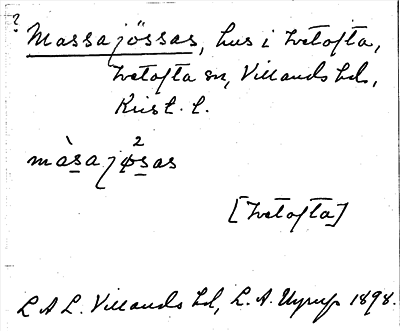 ?
Massajössas, hus i Ivetofta,
Ivetofta sn, Villands hd,
Krist. l.
màsajø²sas
[Ivetofta]
L A L. Villands hd, L. A. Uyrup 1898.